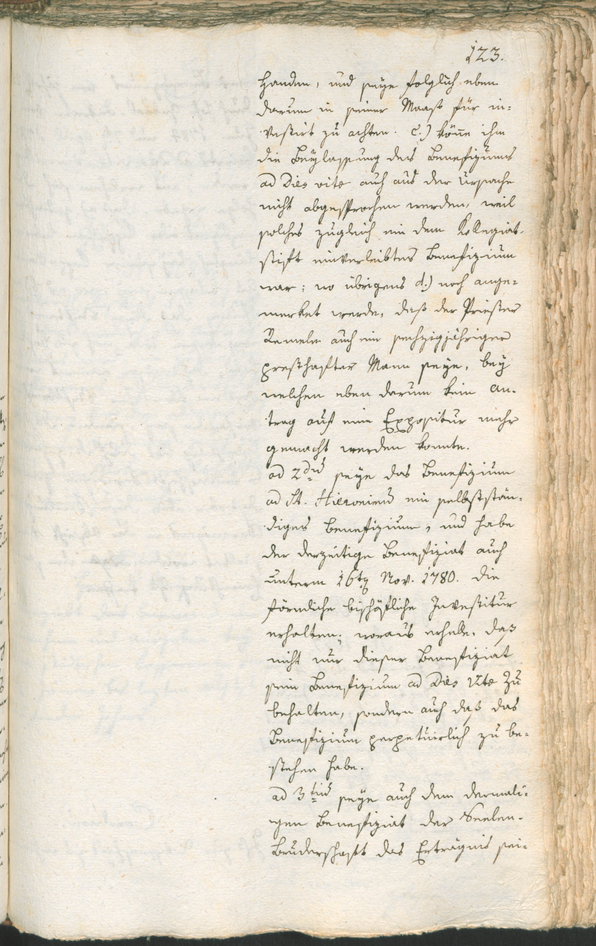 123.
handen, und seye folglich eben
darum in seiner Maaß für in-
vestirt zu achten. c.) könne ihm
die Beylassung des Benefiziums
ad Dies vitæ auch aus der Ursache
nicht abgesprochen werden, weil
solches zugleich ein dem Kollegiat-
stift einverleibtes Benefizium
war; wo übrigens d.) noch ange-
merket werde, daß der Priester
Remele auch ein sechzigjähriger
presthafter Mann seye, bey
welchen eben darum kein An-
trag auf eine Expositur mehr
gemacht werden konnte.
ad 2dum seye das Benefizium
ad St. Hieronimum ein selbststän-
diges Benefizium, und habe
der derzeitige Benefiziat auch
unterm 16ten Nov. 1780. die
förmliche bischöfliche Investitur
erhalten; woraus erhelle, daß
nicht nur dieser Benefiziat
sein Benefizium ad Dies Vitæ zu
behalten, sondern auch daß das
Benefizium perpetuirlich zu be-
stehen habe.
ad 3tium seye auch dem dermali-
gen Benefiziat der Seelen-
Bruderschaft das Erträgnis sei-